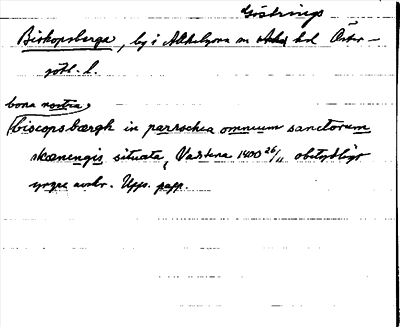 Göstrings
Biskopsberga, by i Allhelgona sn hd Öster-
götl. l.
bona nostra
biscopsbærgh in parrochia omnium sanctorum
skænengis situata, Vastena 1400 26/11 obetydligt
yngre avskr. Upps. papp.